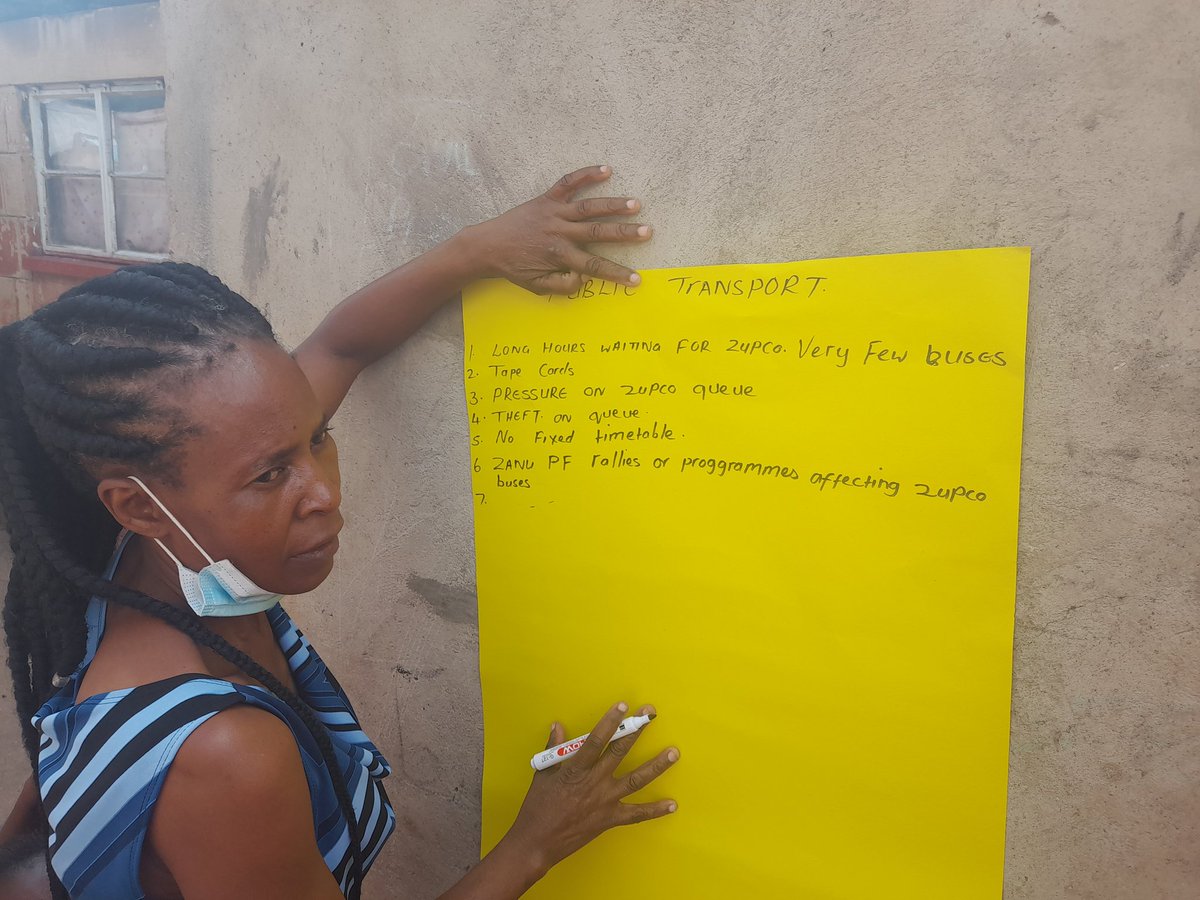 PUBLIC TRANSPORT.
1. LONG HOURS WAITING FOR ZUPCO. Very Few BUSES
2. Tape Cards
3. PRESSURE ON ZUPCO queue
4. THEFT ON queue.
5. No Fixed timetable.
6 ZANU PF rallies or proggrammes affecting ZUPCO
buses
7.